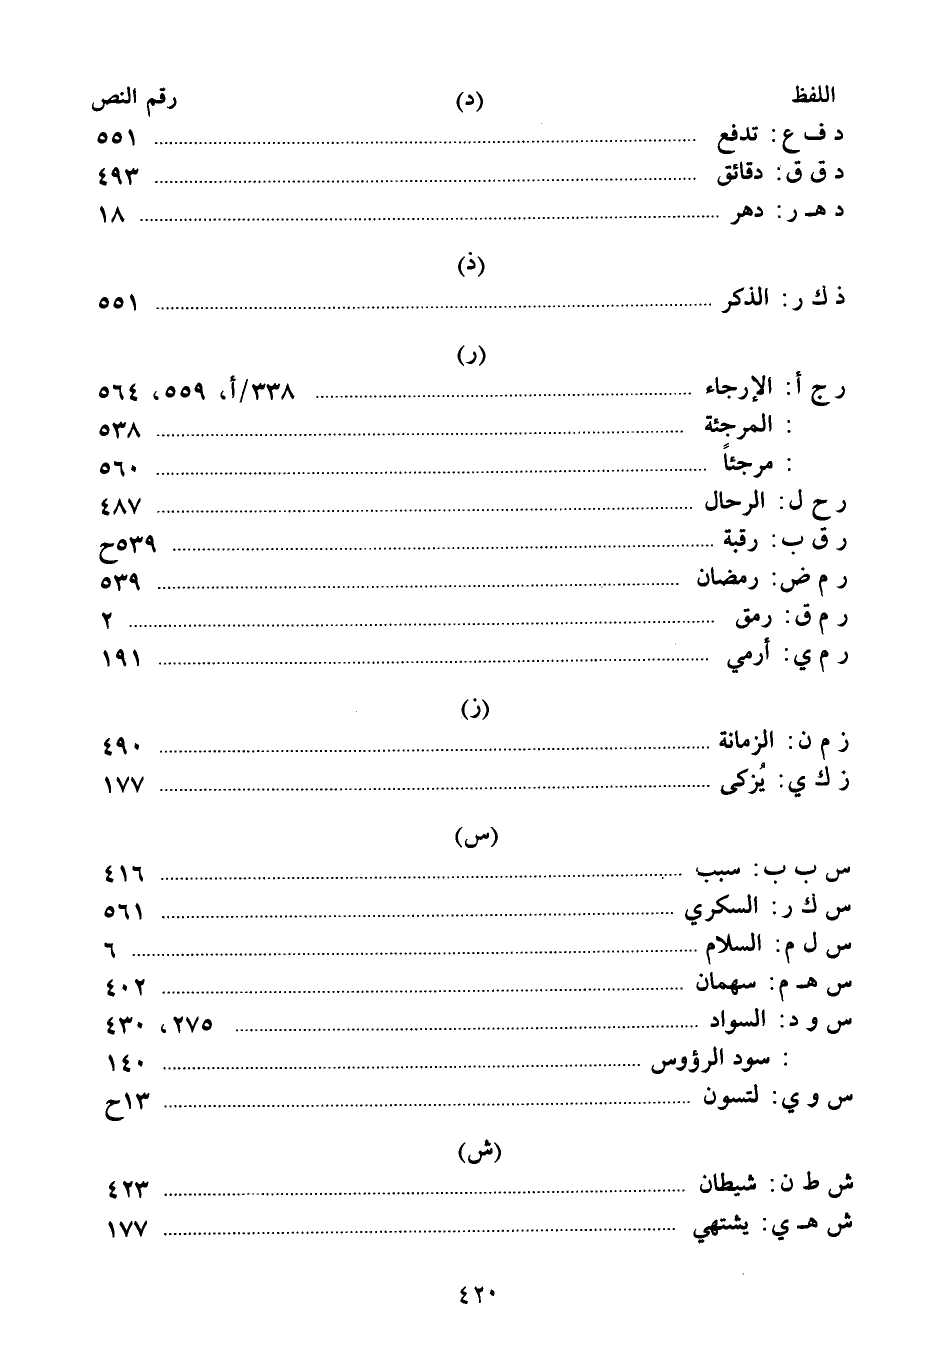 اللفظ (د) رقم النص
د ف ع: تدفع ........ ٥٥١
د ق ق: دقائق ........ ٤٩٣
د هـ ر: دهر ........ ١٨
(ذ)
ذ ك ر: الذكر ........ ٥٥١
(ر)
ر ج أ: الإرجاء ........ ٣٣٨/أ، ٥٥٩، ٥٦٤
: المرجئة ........ ٥٣٨
: مرجئاً ........ ٥٦٠
ر ح ل: الرحال ........ ٤٨٧
ر ق ب: رقبة ........ ٥٣٩ح
ر م ض: رمضان ........ ٥٣٩
ر م ق: رمق ........ ٢
ر م ي: أرمي ........ ١٩١
(ز)
ز م ن: الزمانة ........ ٤٩٠
ز ك ي: يُزكى ........ ١٧٧
(س)
س ب ب: سبب ........ ٤١٦
س ك ر: السكري ........ ٥٦١
س ل م: السلام ........ ٦
س هـ م: سهمان ........ ٤٠٢
س و د: السواد ........ ٢٧٥، ٤٣٠
: سود الرؤوس ........ ١٤٠
س و ي: لتسون ........ ١٣ح
(ش)
ش ط ن: شيطان ........ ٤٢٣
ش هـ ي: يشتهي ........ ١٧٧
٤٢٠